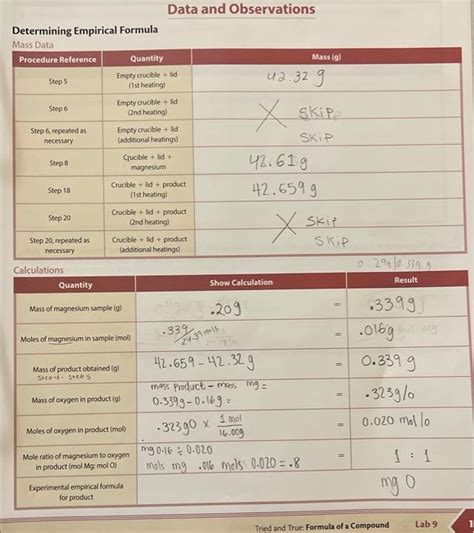 Data and Observations
Determining Empirical Formula
Mass Data
Procedure Reference Quantity Mass (g)
Step 5 Empty crucible + lid (1st heating) 42.32 g
Step 6 Empty crucible + lid (2nd heating) X SKIP
Step 6, repeated as necessary Empty crucible + lid (additional heatings) SKIP
Step 8 Crucible + lid + magnesium 42.61g
Step 18 Crucible + lid + product (1st heating) 42.659 g
Step 20 Crucible + lid + product (2nd heating) X SKIP
Step 20, repeated as necessary Crucible + lid + product (additional heatings) SKIP
Calculations
Quantity Show Calculation Result
Mass of magnesium sample (g) .20g = .339g
Moles of magnesium in sample (mol) .339/24.39 mols = .016g
Mass of product obtained (g) 42.659-42.32 g = 0.339 g
Mass of oxygen in product (g) mass product - mass mg = 0.339g-0.16g = = .323g/0
Moles of oxygen in product (mol) .323gO x 1 mol/16.00g = 0.020 mol/0
Mole ratio of magnesium to oxygen in product (mol Mg: mol O) mg 0.16 ÷ 0.020 mols mg .016 mols: 0.020 = .8 = 1 : 1
Experimental empirical formula for product mg O
Tried and True: Formula of a Compound Lab 9 1